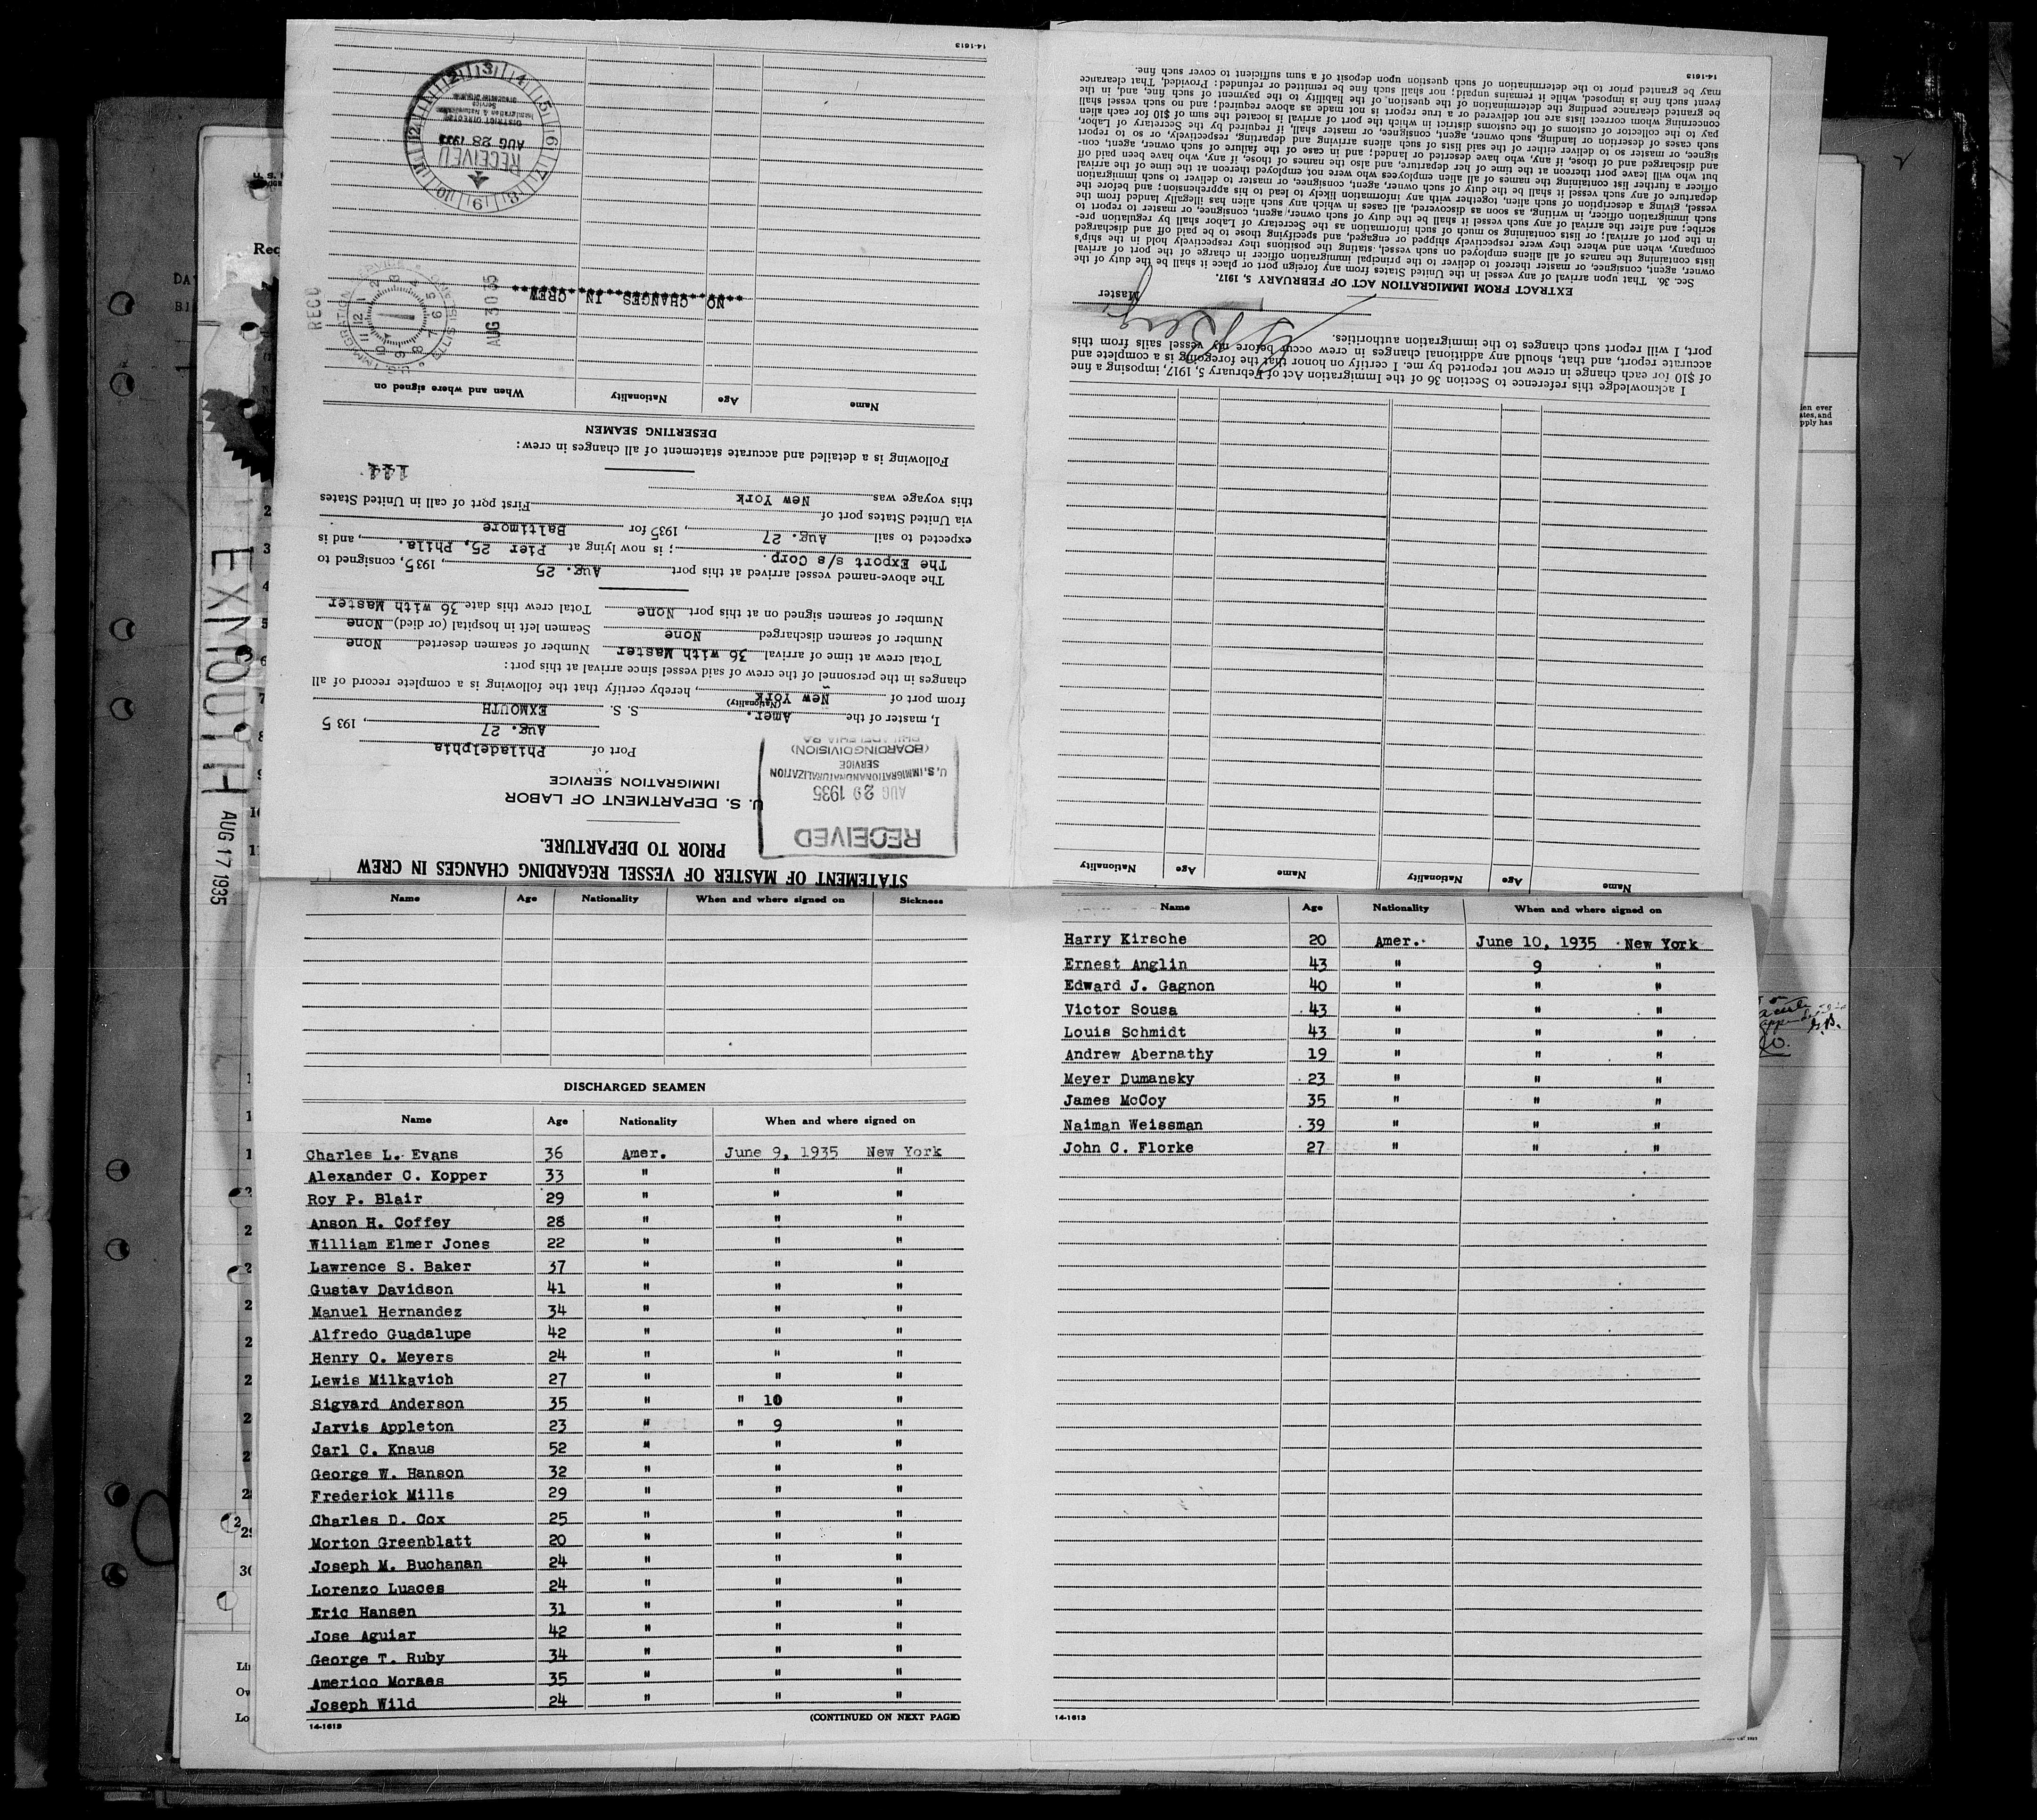 STATEMENT OF MASTER OF VESSEL REGARDING CHANGES IN CREW
PRIOR TO DEPARTURE.
U. S. DEPARTMENT OF LABOR
IMMIGRATION SERVICE
RECEIVED
AUG 29 1935
U.S. IMMIGRATION AND NATURALIZATION
SERVICE
(BOARDING DIVISION)
PHILADELPHIA PA
Port of Philadelphia
Aug. 27, 1935
I, master of the Amer. S. S. EXMOUTH
(Nationality)
from port of New York, hereby certify that the following is a complete record of all
changes in the personnel of the crew of said vessel since arrival at this port:
Total crew at time of arrival 36 with Master Number of seamen deserted None
Number of seamen discharged None Seamen left in hospital (or died) None
Number of seamen signed on at this port None Total crew this date 36 with Master
The above-named vessel arrived at this port Aug. 25, 1935, consigned to
The Export s/s Corp.; is now lying at Pier 25, Phila., and is
expected to sail Aug. 27, 1935 for Baltimore
via United States port of First port of call in United States
this voyage was New York
144
Following is a detailed and accurate statement of all changes in crew:
DESERTING SEAMEN
Name Age Nationality When and where signed on
NO CHANGES IN CREW
REC'D
AUG 30 35
RECEIVED
AUG 28 1935
DISTRICT DIRECTOR
Immigration & Naturalization
Service
14-1613
Name Age Nationality Name Age Nationality
I acknowledge this reference to Section 36 of the Immigration Act of February 5, 1917, imposing a fine
of $10 for each change in crew not reported by me. I certify on honor that the foregoing is a complete and
accurate report, and that, should any additional changes in crew occur before my vessel sails from this
port, I will report such changes to the immigration authorities.
Master
EXTRACT FROM IMMIGRATION ACT OF FEBRUARY 5, 1917.
Sec. 36. That upon arrival of any vessel in the United States from any foreign port or place it shall be the duty of the
owner, agent, consignee, or master thereof to deliver to the principal immigration officer in charge of the port of arrival
lists containing the names of all aliens employed on such vessel, stating the positions they respectively hold in the ship's
company, when and where they were respectively shipped or engaged, and specifying those to be paid off and discharged
in the port of arrival; or lists containing so much of such information as the Secretary of Labor shall by regulation pre-
scribe; and after the arrival of any such vessel it shall be the duty of such owner, agent, consignee, or master to report to
such immigration officer, in writing, as soon as discovered, all cases in which any such alien has illegally landed from the
vessel, giving a description of such alien, together with any information likely to lead to his apprehension; and before the
departure of any such vessel it shall be the duty of such owner, agent, consignee, or master to deliver to such immigration
officer a further list containing the names of all alien employees who were not employed thereon at the time of the arrival
but who will leave port thereon at the time of her departure, and also the names of those, if any, who have been paid off
and discharged and of those, if any, who have deserted or landed; and in case of the failure of such owner, agent, con-
signee, or master so to deliver either of the said lists of such aliens arriving and departing, respectively, or so to report
such cases of desertion or landing, such owner, agent, consignee, or master shall, if required by the Secretary of Labor,
pay to the collector of customs of the customs district in which the port of arrival is located the sum of $10 for each alien
concerning whom correct lists are not delivered or a true report is not made as above required; and no such vessel shall
be granted clearance pending the determination of the question of the liability to the payment of such fine, and, in the
event such fine is imposed, while it remains unpaid; nor shall such fine be remitted or refunded: Provided, That clearance
may be granted prior to the determination of such question upon deposit of a sum sufficient to cover such fine.
14-1613
EXMOUTH
AUG 17 1935
Name Age Nationality When and where signed on Sickness
DISCHARGED SEAMEN
Name Age Nationality When and where signed on
Charles L. Evans 36 Amer. June 9, 1935 New York
Alexander C. Kopper 33 " " "
Roy P. Blair 29 " " "
Anson H. Coffey 28 " " "
William Elmer Jones 22 " " "
Lawrence S. Baker 37 " " "
Gustav Davidson 41 " " "
Manuel Hernandez 34 " " "
Alfredo Guadalupe 42 " " "
Henry O. Meyers 24 " " "
Lewis Milkavich 27 " " "
Sigvard Anderson 35 " " 10 "
Jarvis Appleton 23 " " 9 "
Carl C. Knaus 52 " " "
George W. Hanson 32 " " "
Frederick Mills 29 " " "
Charles D. Cox 25 " " "
Morton Greenblatt 20 " " "
Joseph M. Buchanan 24 " " "
Lorenzo Luaces 24 " " "
Eric Hansen 31 " " "
Jose Aguiar 42 " " "
George T. Ruby 34 " " "
Americo Moraes 35 " " "
Joseph Wild 24 " " "
14-1613 (CONTINUED ON NEXT PAGE)
Name Age Nationality When and where signed on
Harry Kirsche 20 Amer. June 10, 1935 New York
Ernest Anglin 43 " 9 "
Edward J. Gagnon 40 " " "
Victor Sousa 43 " " "
Louis Schmidt 43 " " "
Andrew Abernathy 19 " " "
Meyer Dumansky 23 " " "
James McCoy 35 " " "
Naiman Weissman 39 " " "
John C. Florke 27 " " "
14-1613